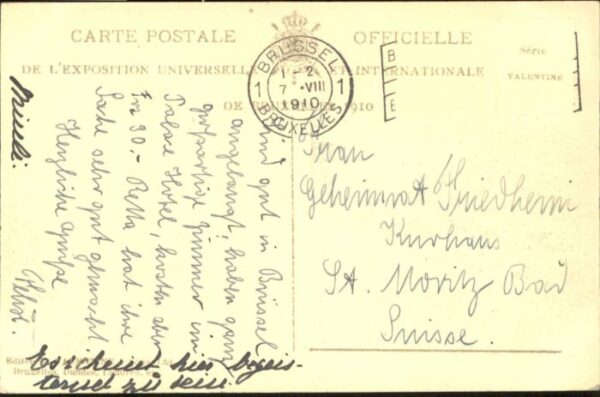 CARTE POSTALE OFFICIELLE
DE L'EXPOSITION UNIVERSELLE ET INTERNATIONALE
DE BRUXELLES 1910
Série
VALENTINE
BRUSSEL
1 - 2
1 7 - VIII 1
1910
BRUXELLES
B
E
Sind gut in Brüssel
angelangt, haben ganz
großartige Zimmer im
Palace Hotel, kosten aber
Frs 30.- Retta hat ihre
Sache sehr gut gemacht
Herzliche Grüße
Frau
Geheimrat Friedheim
Kurhaus
St. Moritz Bad
Suisse.
Es scheint hier begeis-
ternd zu sein.
Bruxelles, Dundee, Londres,